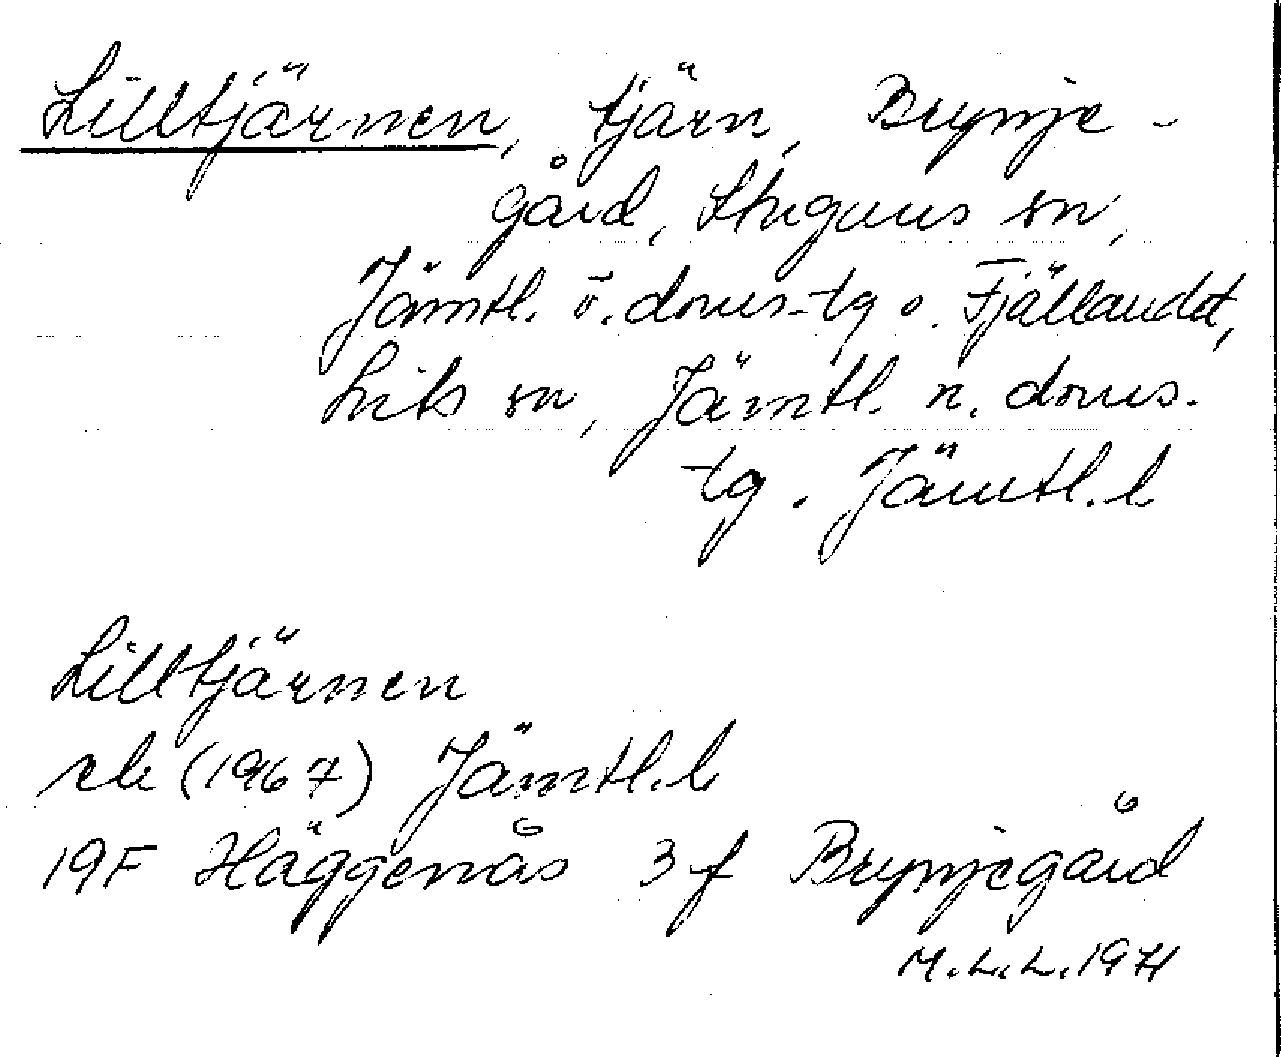 Lilltjärnen, tjärn, Brynje-
gård, Stuguns sn,
Jämtl. ö. doms-tg o. Fjällandet,
Lits sn, Jämtl. n. doms.
tg. Jämtl. l
Lilltjärnen
rek (1967) Jämtl. l
19F Häggenås 3f Brynjegård
M.L.L. 1971